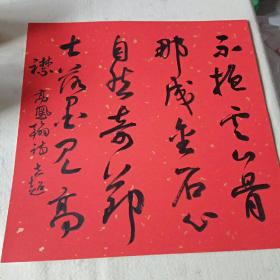 不抱云山骨
那成金石心
自然奇节
士落墨见高
襟 高凤翰诗 志超